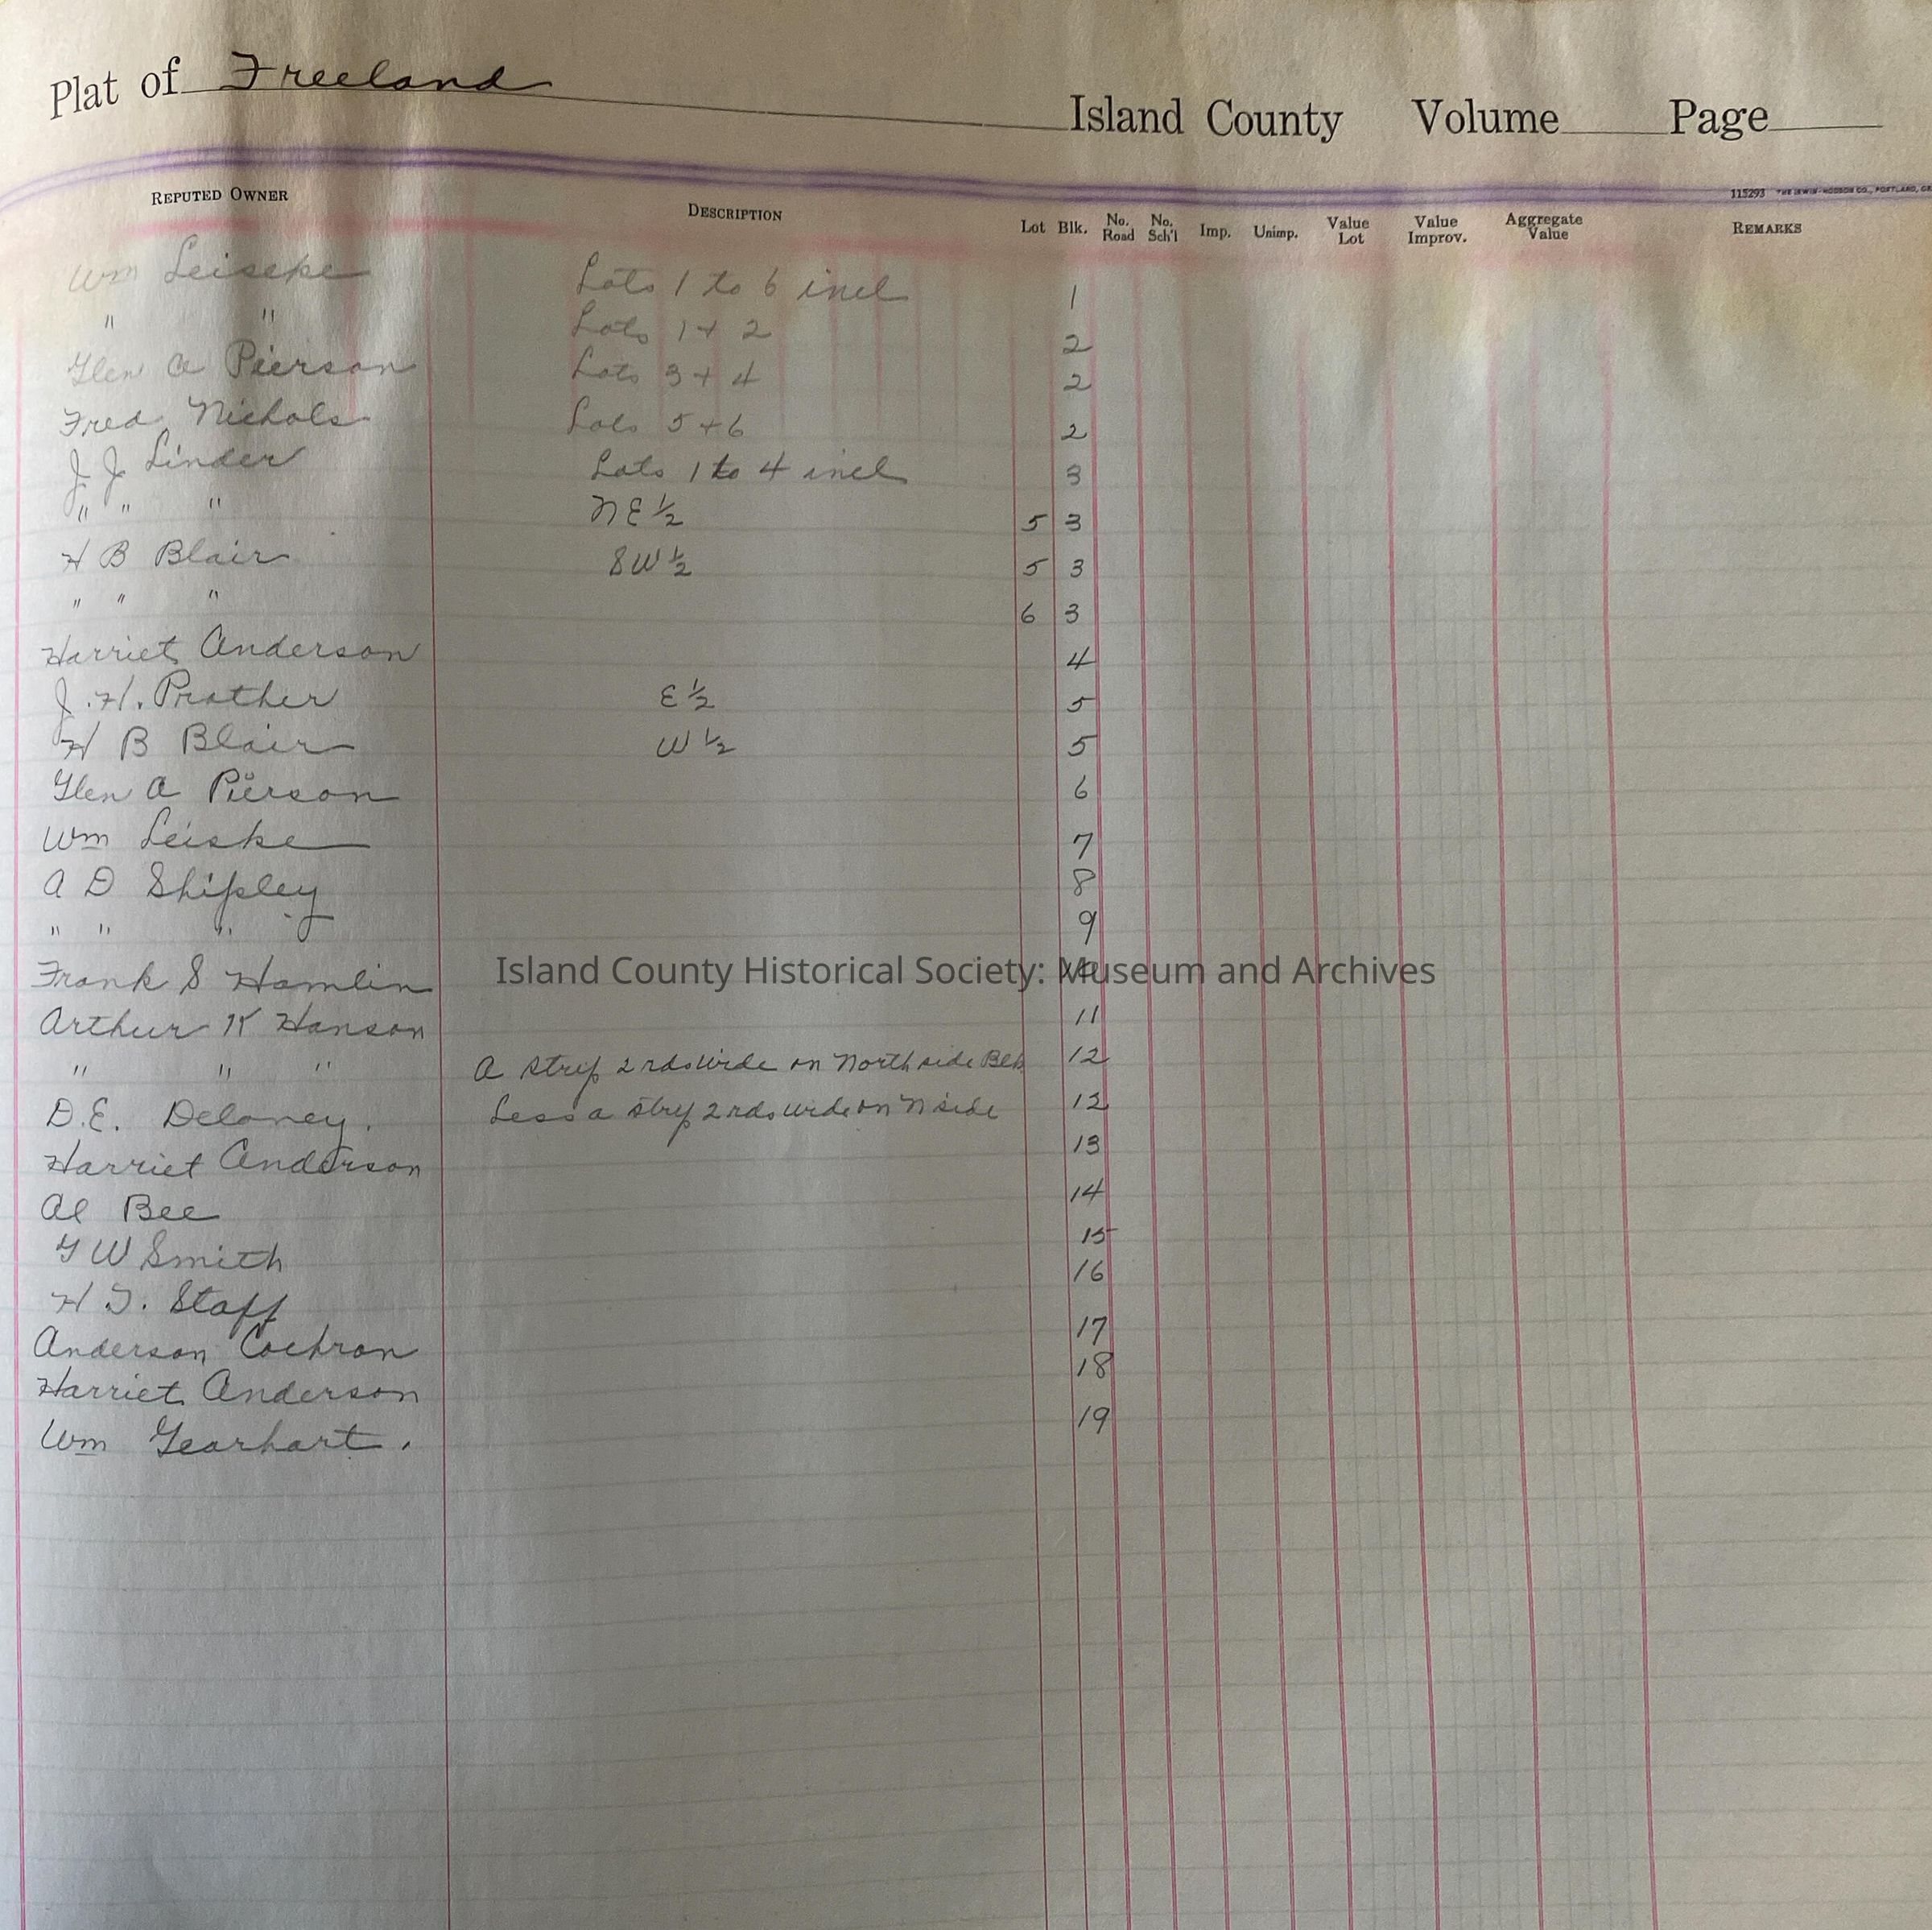 Plat of Freeland Island County Volume Page
115293
REPUTED OWNER DESCRIPTION Lot Blk. No. Road No. Sch'l Imp. Unimp. Value Lot Value Improv. Aggregate Value REMARKS
Wm Leiseke Lots 1 to 6 incl 1
" " Lots 1 + 2 2
Glen A Pierson Lots 3 + 4 2
Fred Nichols Lots 5 + 6 2
J J Linder Lots 1 to 4 incl 3
" " " NE 1/2 5 3
H B Blair SW 1/2 5 3
" " " 6 3
Harriet Anderson 4
J. H. Prather E 1/2 5
H B Blair W 1/2 5
Glen A Pierson 6
Wm Leiske 7
A D Shipley 8
" " " 9
Frank S Hamlin 10
Island County Historical Society: Museum and Archives
Arthur K Hanson 11
" " " A strip 2 rds wide on North side Blk 12
D.E. Delaney. Less a strip 2 rds wide on N side 12
Harriet Anderson 13
Al Bee 14
G W Smith 15
H T. Staff 16
Anderson Cochran 17
Harriet Anderson 18
Wm Gearhart. 19